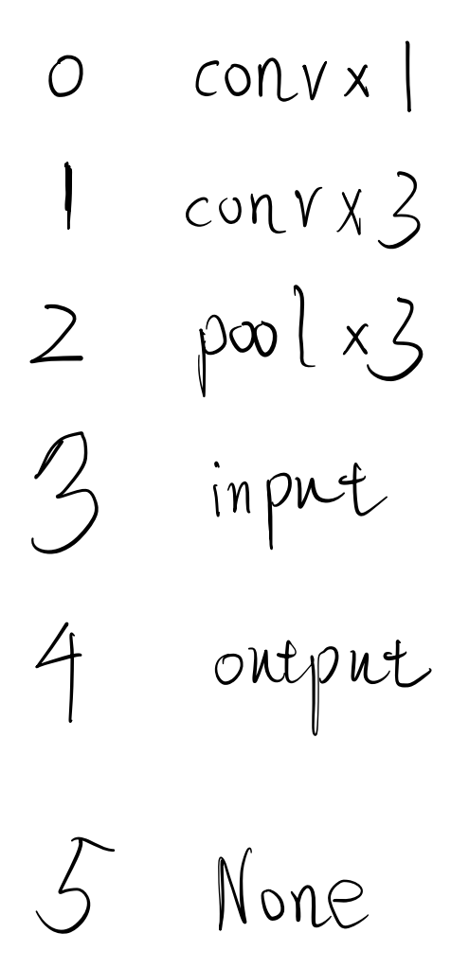 0 conv x 1
1 conv x 3
2 pool x 3
3 input
4 output
5 None